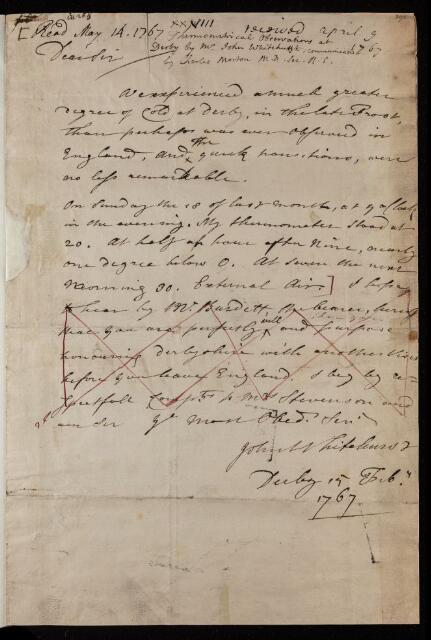 XXXIII received April 9
[Read May 14. 1767 Thermometrical Observations at 1767
Derby by Mr. John Whitehurst, communicated
Dear Sir by Charles Morton M.D. Sec. R.S.
We experienced a much greater
degree of Cold at Derby, in the late Frost,
than perhaps was ever observed in
the
England, and quick transitions, were
no less remarkable.
On Sunday the 18 of last month, at 9 oClock
in the evening. My thermometer stood at
20. At half an hour after Nine, nearly
one degree below 0. At seven the next
Morning 00. External Air.] I hope
to hear by Mr. Burdett, the bearer, hereof
that you are perfectly well and purpose
honouring derbyshire with another
before you leave England. I beg my re-
spectfull Compts. to Mrs Stevenson and
am Sir yr. Most Obedt. Servt
John Whitehurst
Derby 15 Feb.
1767.